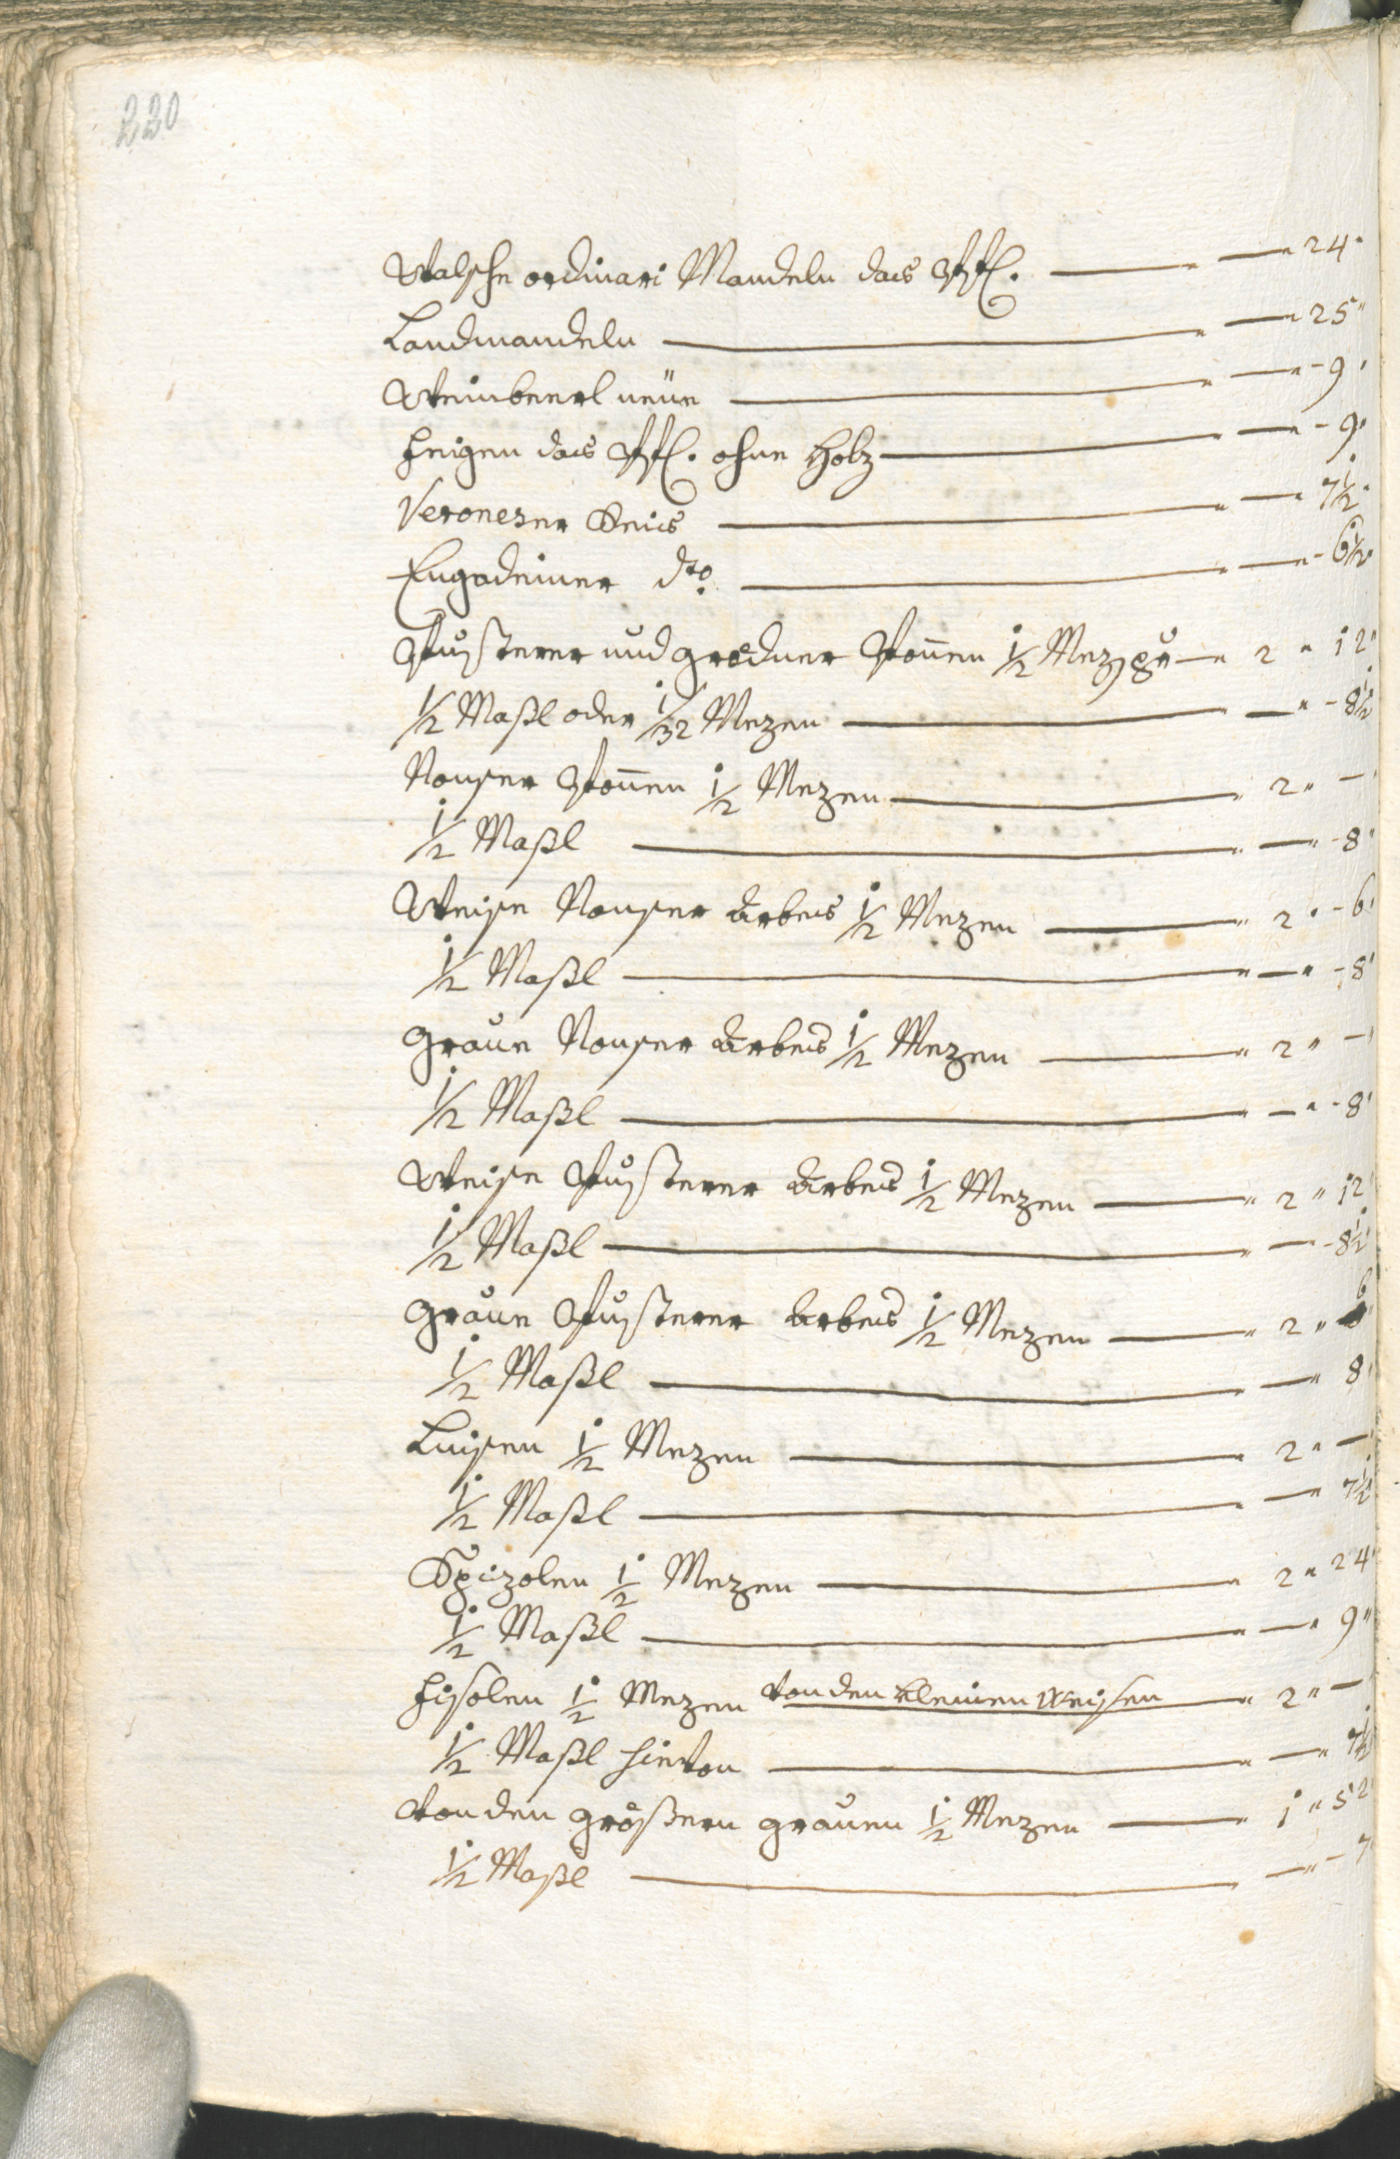 220
Walsche ordinari Mandeln das Pf. — — 24.
Landmandeln — — 25
Weinbeerl neüe — — 9.
Feigen das Pf. ohne Holz — — 9.
Veroneser Reis — — 7 1/2.
Engadeiner dto. — — 6 1/2.
Pusterer und gredner Ponen 1/2 Mez pr — 2 " 12"
1/2 Maßl oder 1/32 Mezen — — 8 1/2
Nonser Ponen 1/2 Mezen — 2 " —
1/2 Maßl — — 8"
Weise Nonser Arbeis 1/2 Mezen — 2 " 6
1/2 Maßl — — 8"
graue Nonser Arbeis 1/2 Mezen — 2 " —
1/2 Maßl — — 8"
Weise Pusterer Arbeis 1/2 Mezen — 2 " 12
1/2 Maßl — — 8 1/2
graue Pusterer Arbeis 1/2 Mezen — 2 " 6
1/2 Maßl — — 8
Linsen 1/2 Mezen — 2 " —
1/2 Maßl — — 7 1/2
Spizolen 1/2 Mezen — 2 " 24
1/2 Maßl — — 9"
Fisolen 1/2 Mezen von den kleinen Weisen — 2 " —
1/2 Maßl hievon — — 7 1/2
von den größern grauen 1/2 Mezen — 1 " 52
1/2 Maßl — — 7